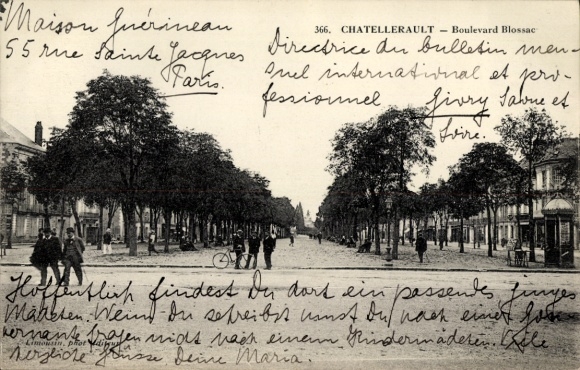 Maison Guérineau
55 rue Sainte Jacques
Paris.
366. CHATELLERAULT — Boulevard Blossac
Directrice du bulletin men-
suel international et pro-
fessionnel Givry Saône et
Loire.
Hoffentlich findest Du dort ein passendes junges
Mädchen. Wenn Du schreibst musst Du nach einer Gou-
vernante fragen nicht nach einem Kindermädchen. Viele
herzliche Grüsse Deine Maria.
Limousin, phot.